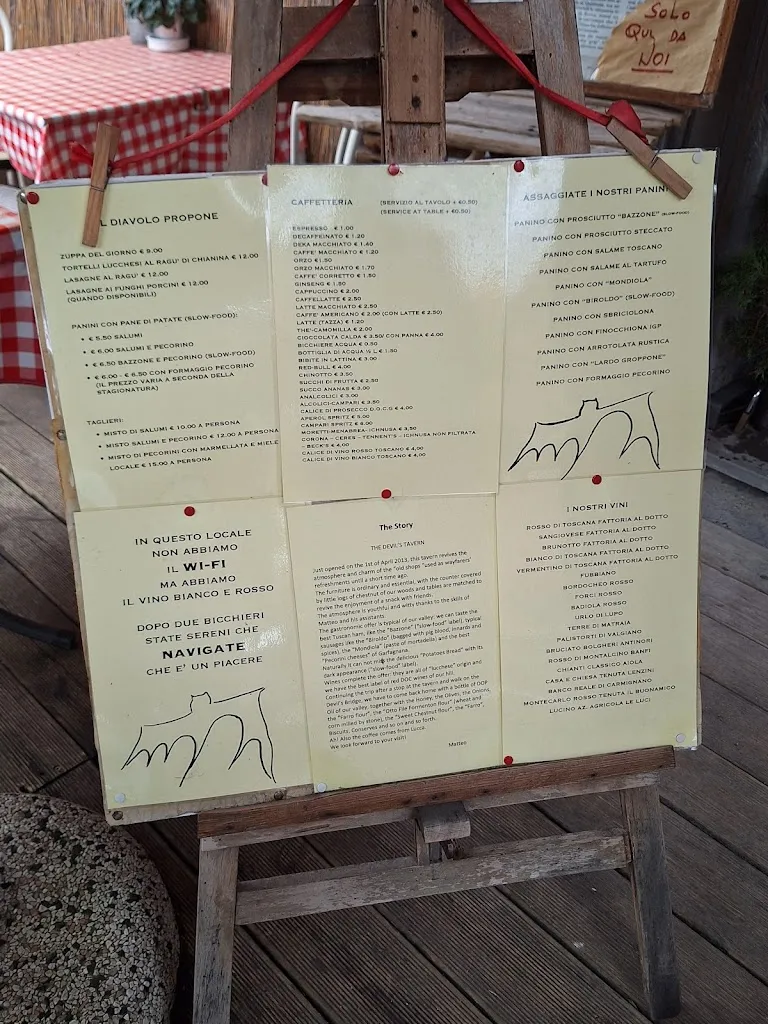 SOLO
QUI DA
NOI
IL DIAVOLO PROPONE
ZUPPA DEL GIORNO € 9.00
TORTELLI LUCCHESI AL RAGU' DI CHIANINA € 12.00
LASAGNE AL RAGU' € 12.00
LASAGNE AI FUNGHI PORCINI € 12.00
(QUANDO DISPONIBILI)
PANINI CON PANE DI PATATE (SLOW-FOOD):
• € 5.50 SALUMI
• € 6.00 SALUMI E PECORINO
• € 6.50 BAZZONE E PECORINO (SLOW-FOOD)
• € 6.00 - € 6.50 CON FORMAGGIO PECORINO
(IL PREZZO VARIA A SECONDA DELLA
STAGIONATURA)
TAGLIERI:
• MISTO DI SALUMI € 10.00 A PERSONA
• MISTO SALUMI E PECORINO € 12.00 A PERSONA
• MISTO DI PECORINI CON MARMELLATA E MIELE
LOCALE € 15.00 A PERSONA
CAFFETTERIA (SERVIZIO AL TAVOLO + €0.50)
(SERVICE AT TABLE + €0.50)
ESPRESSO € 1.00
DECAFFEINATO € 1.20
DEKA MACCHIATO € 1.40
CAFFE' MACCHIATO € 1.20
ORZO € 1.50
ORZO MACCHIATO € 1.70
CAFFE' CORRETTO € 1.50
GINSENG € 1.50
CAPPUCCINO € 2.00
CAFFELLATTE € 2.50
LATTE MACCHIATO € 2.50
CAFFE' AMERICANO € 2.00 (CON LATTE € 2.50)
LATTE (TAZZA) € 1.20
THE'-CAMOMILLA € 2.00
CIOCCOLATA CALDA € 3.50/ CON PANNA € 4.00
BICCHIERE ACQUA € 0.50
BOTTIGLIA DI ACQUA ½ L € 1.50
BIBITE IN LATTINA € 3.00
RED-BULL € 4.00
CHINOTTO € 3.50
SUCCHI DI FRUTTA € 2.50
SUCCO ANANAS € 3.00
ANALCOLICI € 3.00
ALCOLICI-CAMPARI € 3.50
CALICE DI PROSECCO D.O.C.G € 4.00
APEROL SPRITZ € 5.00
CAMPARI SPRITZ € 6.00
MORETTI-MENABREA- ICHNUSA € 3,50
CORONA – CERES – TENNENT'S - ICHNUSA NON FILTRATA
– BECK'S € 4,00
CALICE DI VINO ROSSO TOSCANO € 4,00
CALICE DI VINO BIANCO TOSCANO € 4,00
ASSAGGIATE I NOSTRI PANINI
PANINO CON PROSCIUTTO "BAZZONE" (SLOW-FOOD)
PANINO CON PROSCIUTTO STECCATO
PANINO CON SALAME TOSCANO
PANINO CON SALAME AL TARTUFO
PANINO CON "MONDIOLA"
PANINO CON "BIROLDO" (SLOW-FOOD)
PANINO CON SBRICIOLONA
PANINO CON FINOCCHIONA IGP
PANINO CON ARROTOLATA RUSTICA
PANINO CON "LARDO GROPPONE"
PANINO CON FORMAGGIO PECORINO
IN QUESTO LOCALE
NON ABBIAMO
IL WI-FI
MA ABBIAMO
IL VINO BIANCO E ROSSO
DOPO DUE BICCHIERI
STATE SERENI CHE
NAVIGATE
CHE E' UN PIACERE
The Story
THE DEVIL'S TAVERN
Just opened on the 1st of April 2013, this tavern revives the
atmosphere and charm of the "old shops "used as wayfarers'
refreshments until a short time ago.
The furniture is ordinary and essential, with the counter covered
by little logs of chestnut of our woods and tables are matched to
revive the enjoyment of a snack with friends.
The atmosphere is youthful and witty thanks to the skills of
Matteo and his assistants.
The gastronomic offer is typical of our valley: we can taste the
best Tuscan ham, like the "Bazzone" ("slow food" label), typical
sausages like the "Biroldo" (bagged with pig blood, innards and
spices), the "Mondiola" (paste of mortadella) and the best
"Pecorini cheeses" of Garfagnana.
Naturally it can not miss the delicious "Potatoes Bread" with its
dark appearance ("slow-food" label).
Wines complete the offer: they are all of "lucchese" origin and
we have the best label of red DOC wines of our hill.
Continuing the trip after a stop at the tavern and walk on the
Devil's Bridge, we have to come back home with a bottle of DOP
Oil of our valley, together with the Honey, the Olives, the Onions,
the "Farro flour", the "Otto File Formenton flour" (wheat and
corn milled by stone), the "Sweet Chestnut flour", the "Farro",
Biscuits, Conserves and so on and so forth.
Ah! Also the coffee comes from Lucca.
We look forward to your visit!
Matteo
I NOSTRI VINI
ROSSO DI TOSCANA FATTORIA AL DOTTO
SANGIOVESE FATTORIA AL DOTTO
BRUNOTTO FATTORIA AL DOTTO
BIANCO DI TOSCANA FATTORIA AL DOTTO
VERMENTINO DI TOSCANA FATTORIA AL DOTTO
FUBBIANO
BORDOCHEO ROSSO
FORCI ROSSO
BADIOLA ROSSO
URLO DI LUPO
TERRE DI MATRAIA
PALISTORTI DI VALGIANO
BRUCIATO BOLGHERI ANTINORI
ROSSO DI MONTALCINO BANFI
CHIANTI CLASSICO AIOLA
CASA E CHIESA TENUTA LENZINI
BARCO REALE DI CARMIGNANO
MONTECARLO ROSSO TENUTA IL BUONAMICO
LUCINO AZ. AGRICOLA LE LUCI